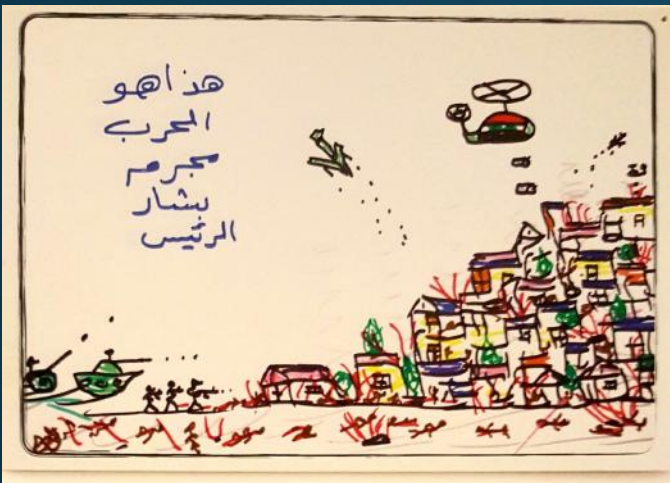 هذا هو
الحرب
مجرم
بشار
الرئيس